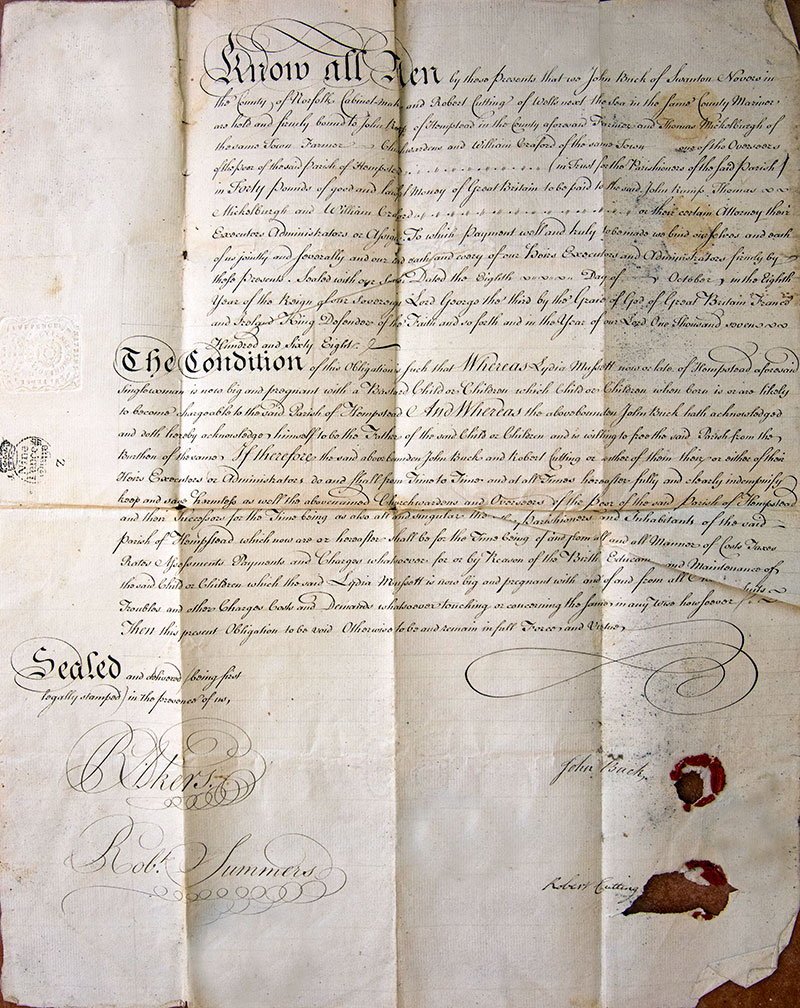 Know all Men by these Presents that we John Buck of Swanton Novers in
the County of Norfolk Cabinetmak and Robert Cutting of Wells next the Sea in the same County Mariner
are held and firmly bound to John of Hempstead in the County aforesaid Farmer and Thomas Mickelburgh of
the same Town Farmer Churchwardens and William Craford of the same Town one of the Overseers
of the poor of the said Parish of Hempstead (in Trust for the Parishioners of the said Parish)
in Forty Pounds of good and lawful Money of Great Britain to be paid to the said John Kump Thomas
Mickelburgh and William Craford or their certain Attorney their
Executors Administrators or Assigns To which Payment well and truly to be made we bind ourselves and each
of us jointly and severally and our and each and every of our Heirs Executors and Administrators firmly by
these Presents. Sealed with our Seals Dated the Eighth Day of October in the Eighth
Year of the Reign of our Sovereign Lord George the third by the Grace of God of Great Britain France
and Ireland King Defender of the Faith and so forth and in the Year of our Lord One Thousand seven
Hundred and Sixty Eight
The Condition of this Obligation is such that Whereas Lydia Mussett now or late of Hempstead aforesaid
Singlewoman is now big and pregnant with a Bastard Child or Children which Child or Children when born is or are likely
to become chargeable to the said Parish of Hempstead And Whereas the abovebounden John Buck hath acknowledged
and doth hereby acknowledge himself to be the Father of the said Child or Children and is willing to free the said Parish from the
Burthen of the same If therefore the said abovebounden John Buck and Robert Cutting or either of them their or either of their
Heirs Executors or Administrators do and shall from Time to Time and at all Times hereafter fully and clearly indemnify
keep and save harmless as well the abovenamed Churchwardens and Overseers of the Poor of the said Parish of Hempstead
and their Successors for the Time being as also all and singular the Parishioners and Inhabitants of the said
Parish of Hempstead which now are or hereafter shall be for the Time being of and from all and all Manner of Costs Taxes
Rates Assessments Payments and Charges whatsoever for or by Reason of the Birth Educa and Maintenance of
the said Child or Children which the said Lydia Mussett is now big and pregnant with and of and from all suits
Troubles and other Charges Costs and Demands whatsoever touching or concerning the same in any Wise howsoever
Then this present Obligation to be void Otherwise to be and remain in full Force and Virtue
Sealed and delivered (being first
legally stamped) in the presence of us,
John Buck
Robt. Summers
Robert Cutting